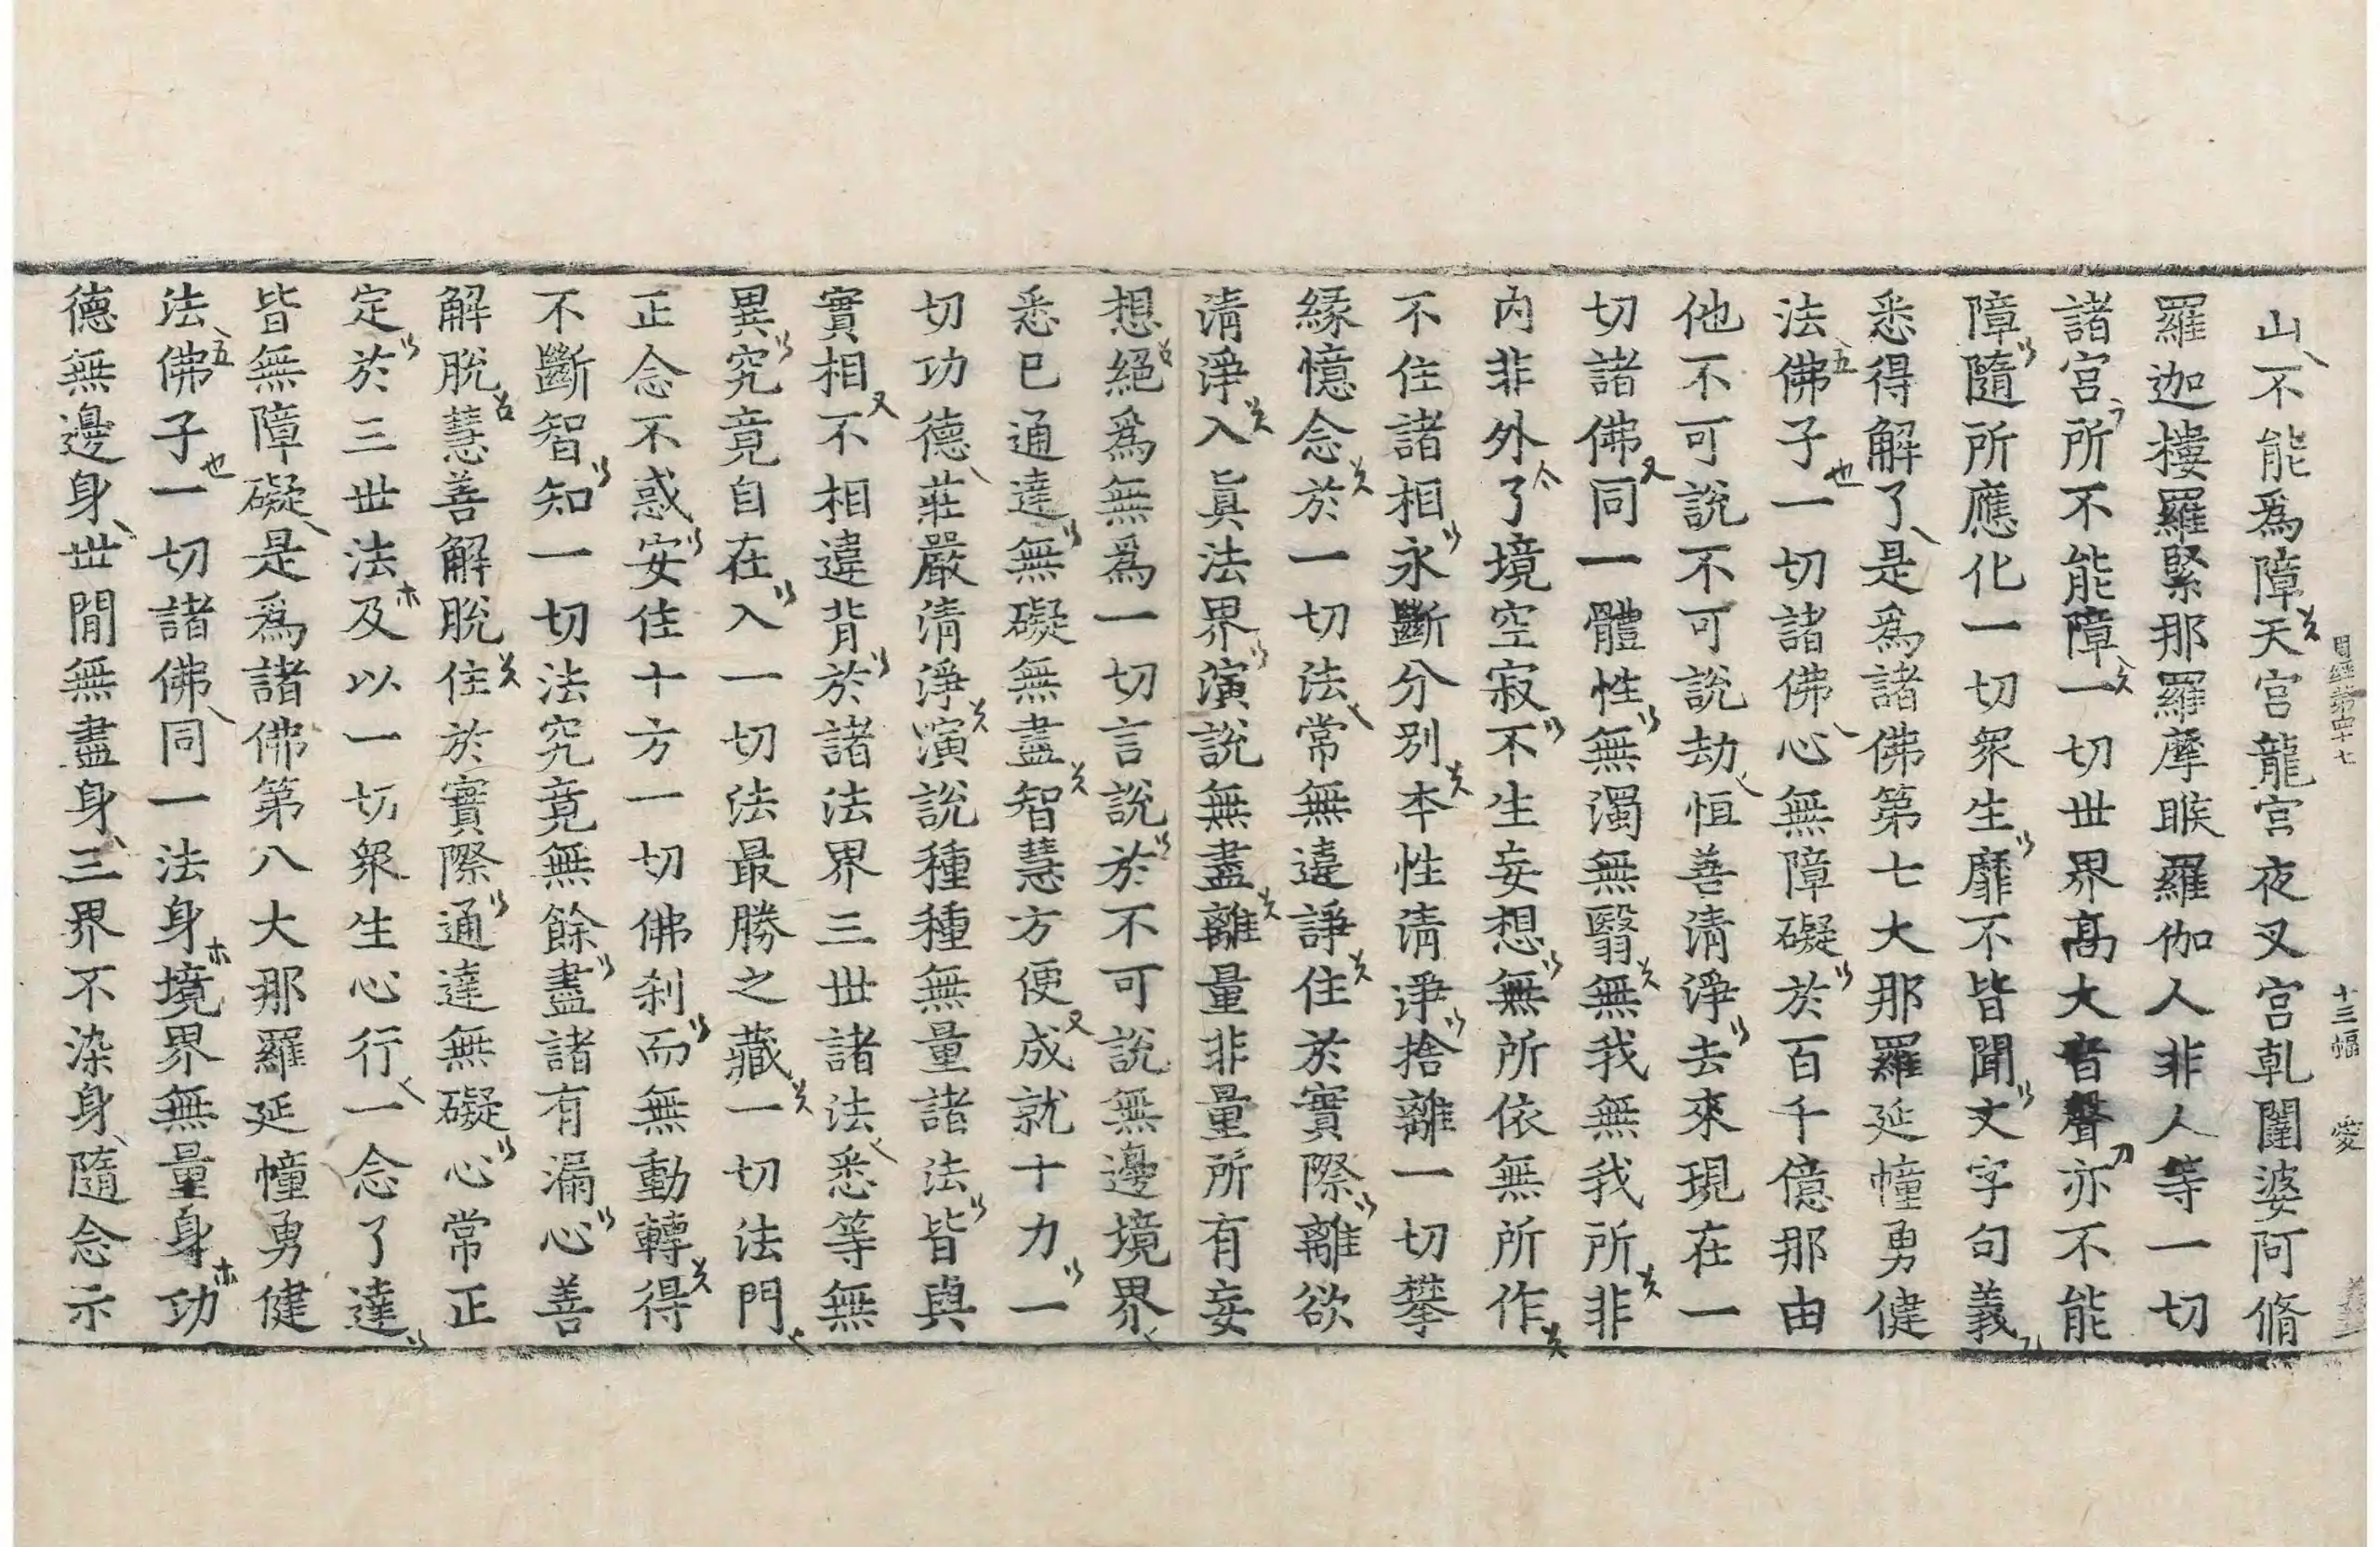 山不能爲障天宮龍宮夜叉宮乹闥婆阿脩
羅迦樓羅緊那羅摩睺羅伽人非人等一切
諸宮所不能障一切世界高大音聲亦不能
障隨所應化一切衆生靡不皆聞文字句義
悉得解了是爲諸佛第七大那羅延幢勇健
法佛子一切諸佛心無障礙於百千億那由
他不可說不可說劫恒善淸淨去來現在一
切諸佛同一體性無濁無翳無我無我所非
內非外了境空寂不生妄想無所依無所作
不住諸相永斷分別本性淸淨捨離一切攀
緣憶念於一切法常無違諍住於實際離欲
淸淨入眞法界演說無盡離量非量所有妄
想絕爲無爲一切言說於不可說無邊境界
悉已通達無礙無盡智慧方便成就十力一
切功德莊嚴淸淨演說種種無量諸法皆與
實相不相違背於諸法界三世諸法悉等無
異究竟自在入一切法最勝之藏一切法門
正念不惑安住十方一切佛刹而無動轉得
不斷智知一切法究竟無餘盡諸有漏心善
解脫慧善解脫住於實際通達無礙心常正
定於三世法及以一切衆生心行一念了達
皆無障礙是爲諸佛第八大那羅延幢勇健
法佛子一切諸佛同一法身境界無量身功
德無邊身世間無盡身三界不染身隨念示